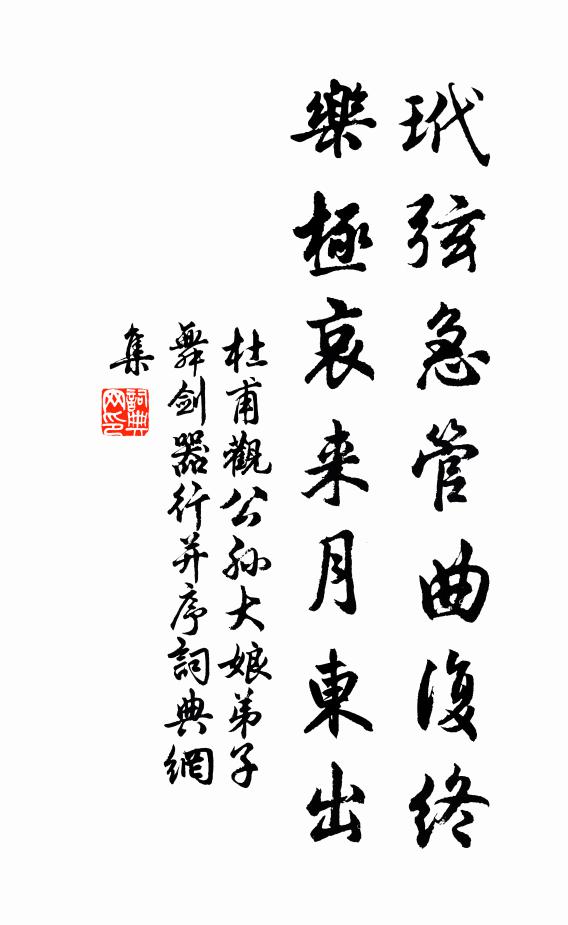 玳弦急管曲復終
樂極哀来月東出
杜甫觀公孫大娘弟子
舞劍器行并序詞典網
集
詞典
网印